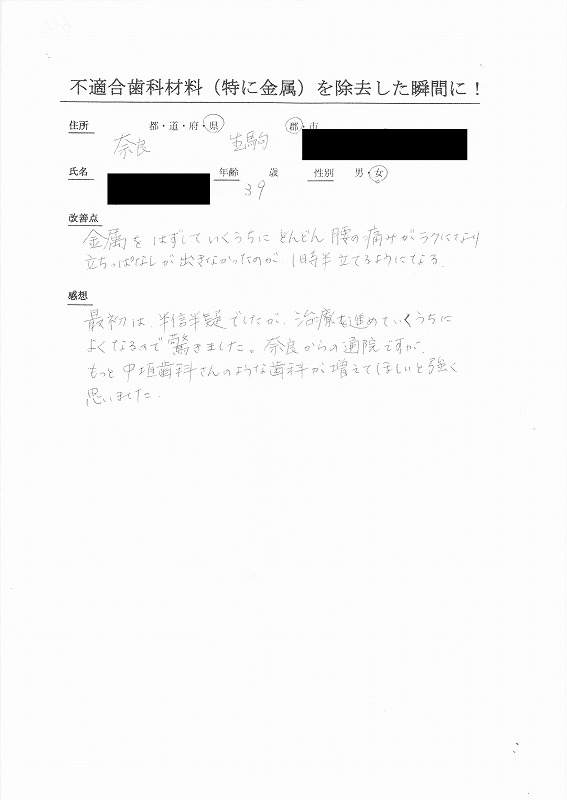 不適合歯科材料（特に金属）を除去した瞬間に！
住所 奈良 都・道・府・県 生駒 郡・市
氏名 年齢 39 歳 性別 男・女
改善点
金属をはずしていくうちにどんどん腰の痛みがラクになり
立ちっぱなしが出きなかったのが1時半立てるようになる.
感想
最初は、半信半疑でしたが、治療を進めていくうちに
よくなるので驚きました。奈良からの通院ですが、
もっと中垣歯科さんのような歯科が増えてほしいと強く
思いました.